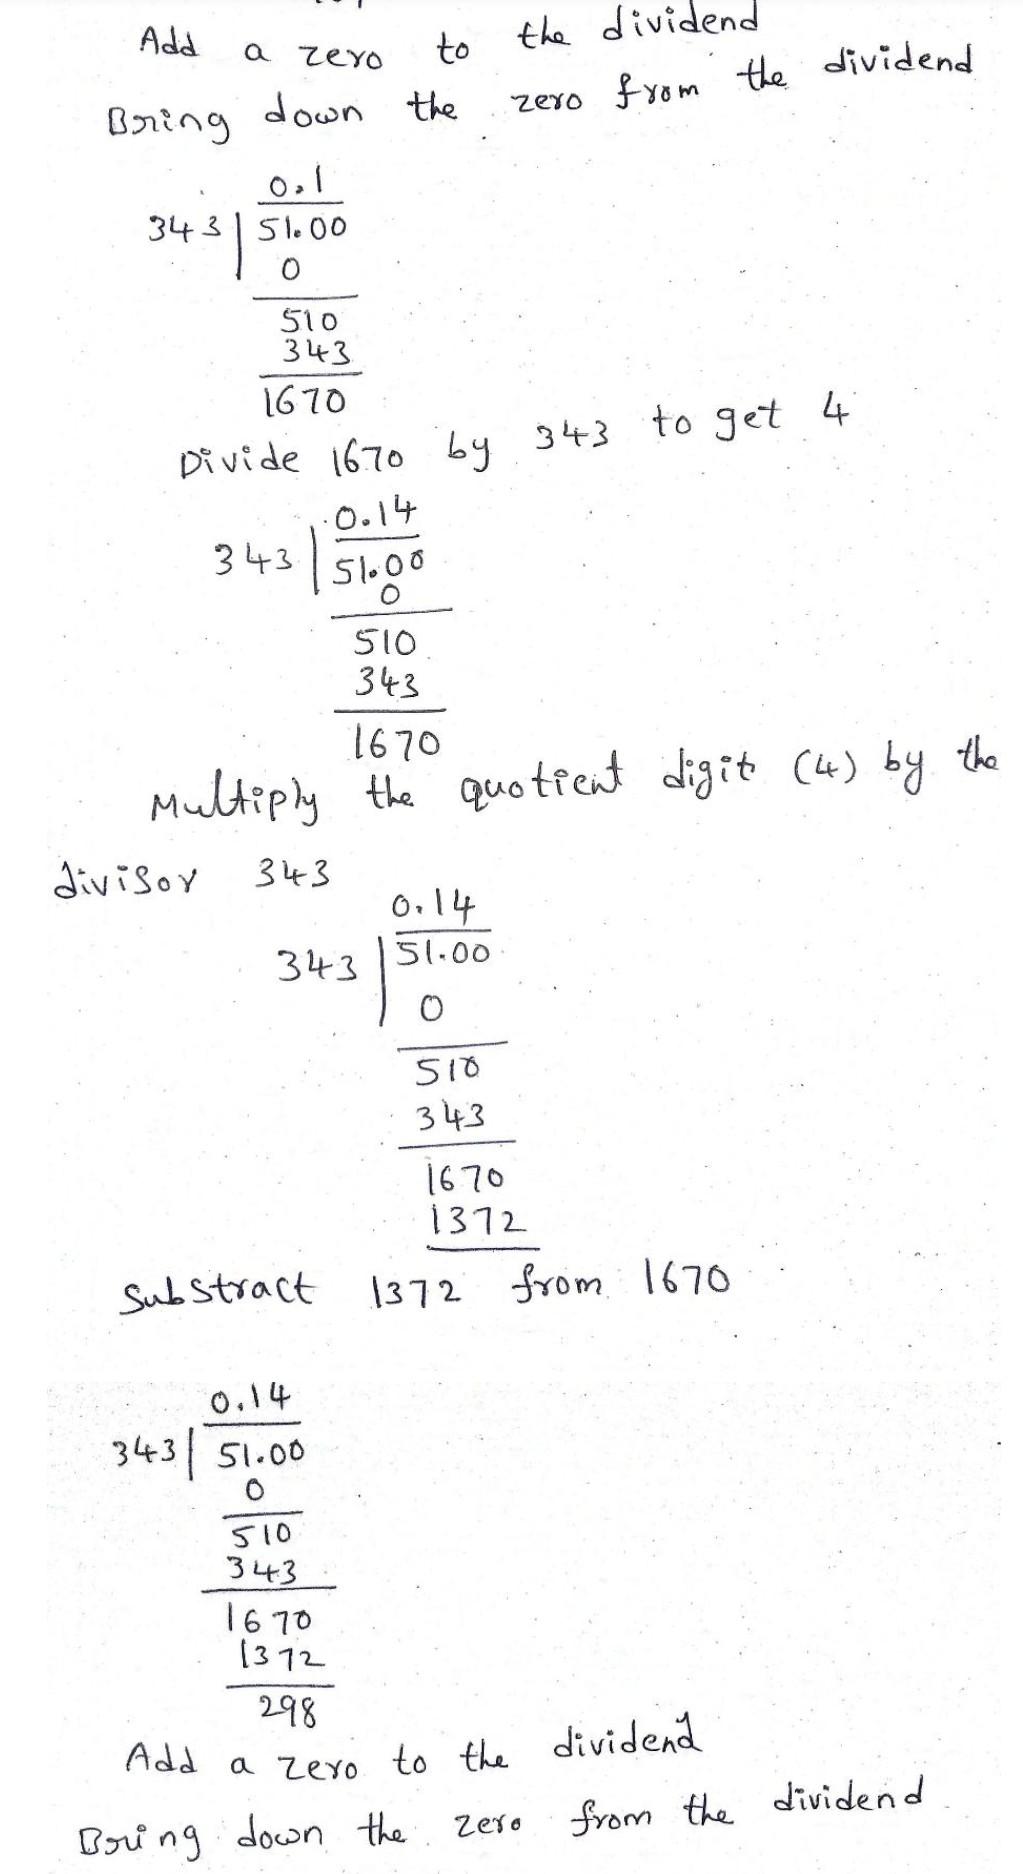 Add a zero to the dividend
Bring down the zero from the dividend
0.1
343 51.00
0
510
343
1670
Divide 1670 by 343 to get 4
0.14
343 51.00
0
510
343
1670
Multiply the quotient digit (4) by the
divisor 343
0.14
343 51.00
0
510
343
1670
1372
Substract 1372 from 1670
0.14
343 51.00
0
510
343
1670
1372
298
Add a zero to the dividend
Bring down the zero from the dividend